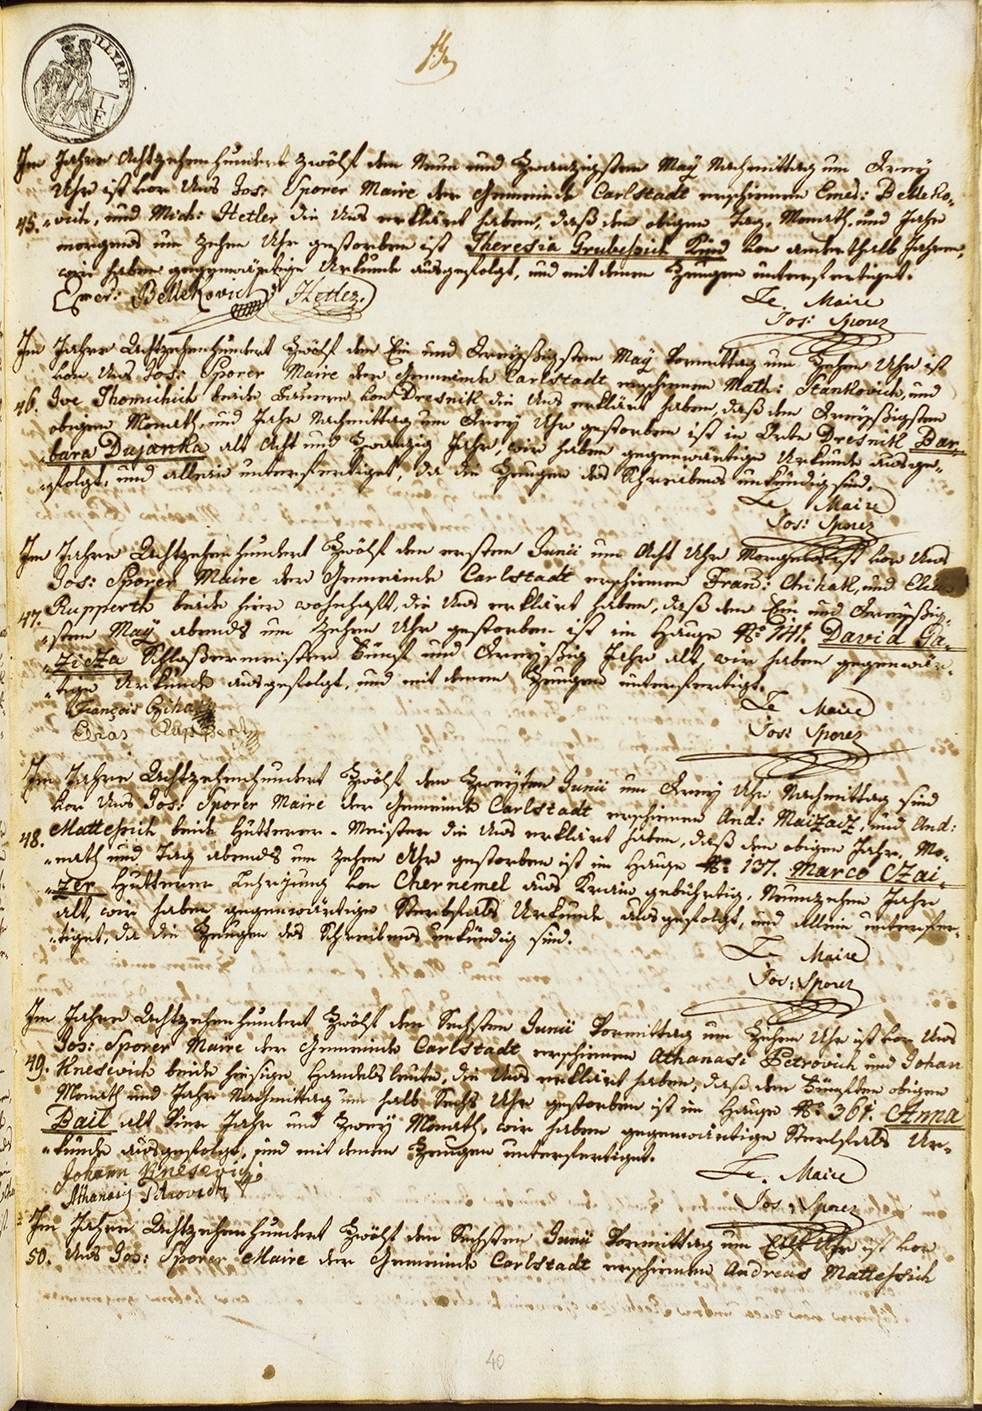 ILLYRIE
1 F
Im Jahre Achtzehenhundert zwölf den Neun und Zwanzigsten May Nachmittag um Drey
Uhr ist vor Uns Jos: Sporer Maire der Gemeinde Carlstadt erschienen Emer: Belleko-
45. -vich, und Mich: Hetler die Uns erklärt haben, daß den obigen Tag, Monath, und Jahr
morgens um Zehen Uhr gestorben ist Theresia Grubessich Kind von anderthalb Jahren,
wir haben gegenwärtige Urkunde ausgefolgt, und mit denen Zeugen unterfertiget.
Emer: Bellekovich Hetler
Le Maire
Jos: Sporer
Im Jahre Achtzehenhundert Zwölf den Ein und Dreyßigsten May Vormittag um Zehen Uhr ist
vor Uns Jos: Sporer Maire der Gemeinde Carlstadt erschienen Math: Stankovich, und
46. Ive Thomichich beide Bauern von Dresnik die Uns erklärt haben, daß den Dreyßigsten
obigen Monath, und Jahr Nachmittag um Drey Uhr gestorben ist in Orte Dresnik Bar-
-bara Dujanka alt Acht und Zwanzig Jahr, wir haben gegenwärtige Urkunde ausge-
-folgt, und allein unterfertiget, da die Zeugen des Schreibens unkündig sind.
Le Maire
Jos: Sporer
Im Jahre Achtzehenhundert Zwölf den ersten Junii um Acht Uhr Morgens ist vor Uns
Jos: Sporer Maire der Gemeinde Carlstadt erschienen Fran: Chihak, und
47. Rupperth beide hier wohnhaft, die Uns erklärt haben, daß den Ein und Dreyßig-
-sten May abends um Zehen Uhr gestorben ist im Hause No David Ga-
-zicza Schloßermeister Fünf und Dreyßig Jahr alt, wir haben gegenwär-
-tige Urkunde ausgefolgt, und mit denen Zeugen unterfertigt.
François Chihak
Le Maire
Jos: Sporer
Im Jahre Achtzehenhundert Zwölf den Zweyten Junii um Drey Uhr Nachmittag sind
vor Uns Jos: Sporer Maire der Gemeinde Carlstadt erschienen And: Maizacz, und And:
48. Mattessich beide Hutterer-Meister die Uns erklärt haben, daß den obigen Jahr, Mo-
-nath und Tag abends um Zehen Uhr gestorben ist im Hause No 137. Marco Czai-
-zer Hutterer Lehrjung von Chernemel aus Krain gebührtig, Neunzehen Jahr
alt, wir haben gegenwärtige Sterbfals Urkunde ausgefolgt, und allein unterfer-
-tiget, da die Zeugen des Schreibens unkündig sind.
Le Maire
Jos: Sporer
Im Jahre Achtzehenhundert Zwölf den Sechsten Junii Vormittag um Zehen Uhr ist vor Uns
Jos: Sporer Maire der Gemeinde Carlstadt erschienen Athanas: Petrovich und Johan
49. Knesevich beide hiesige Handelsleute, die Uns erklärt haben, daß den Fünften obigen
Monath und Jahr Nachmittag um halb Sechs Uhr gestorben ist im Hause No 361. Anna
Bail alt Vier Jahr und Zwey Monath, wir haben gegenwärtige Sterbfals Ur-
-kunde ausgefolgt, und mit denen Zeugen unterfertiget.
Johann Knesevich
Athanasij Petrovich
Le Maire
Jos: Sporer
Im Jahre Achtzehenhundert Zwölf den Sechsten Junii Vormittag um Uhr ist vor
50. Uns Jos: Sporer Maire der Gemeinde Carlstadt erschienen Andreas Mattessich
40